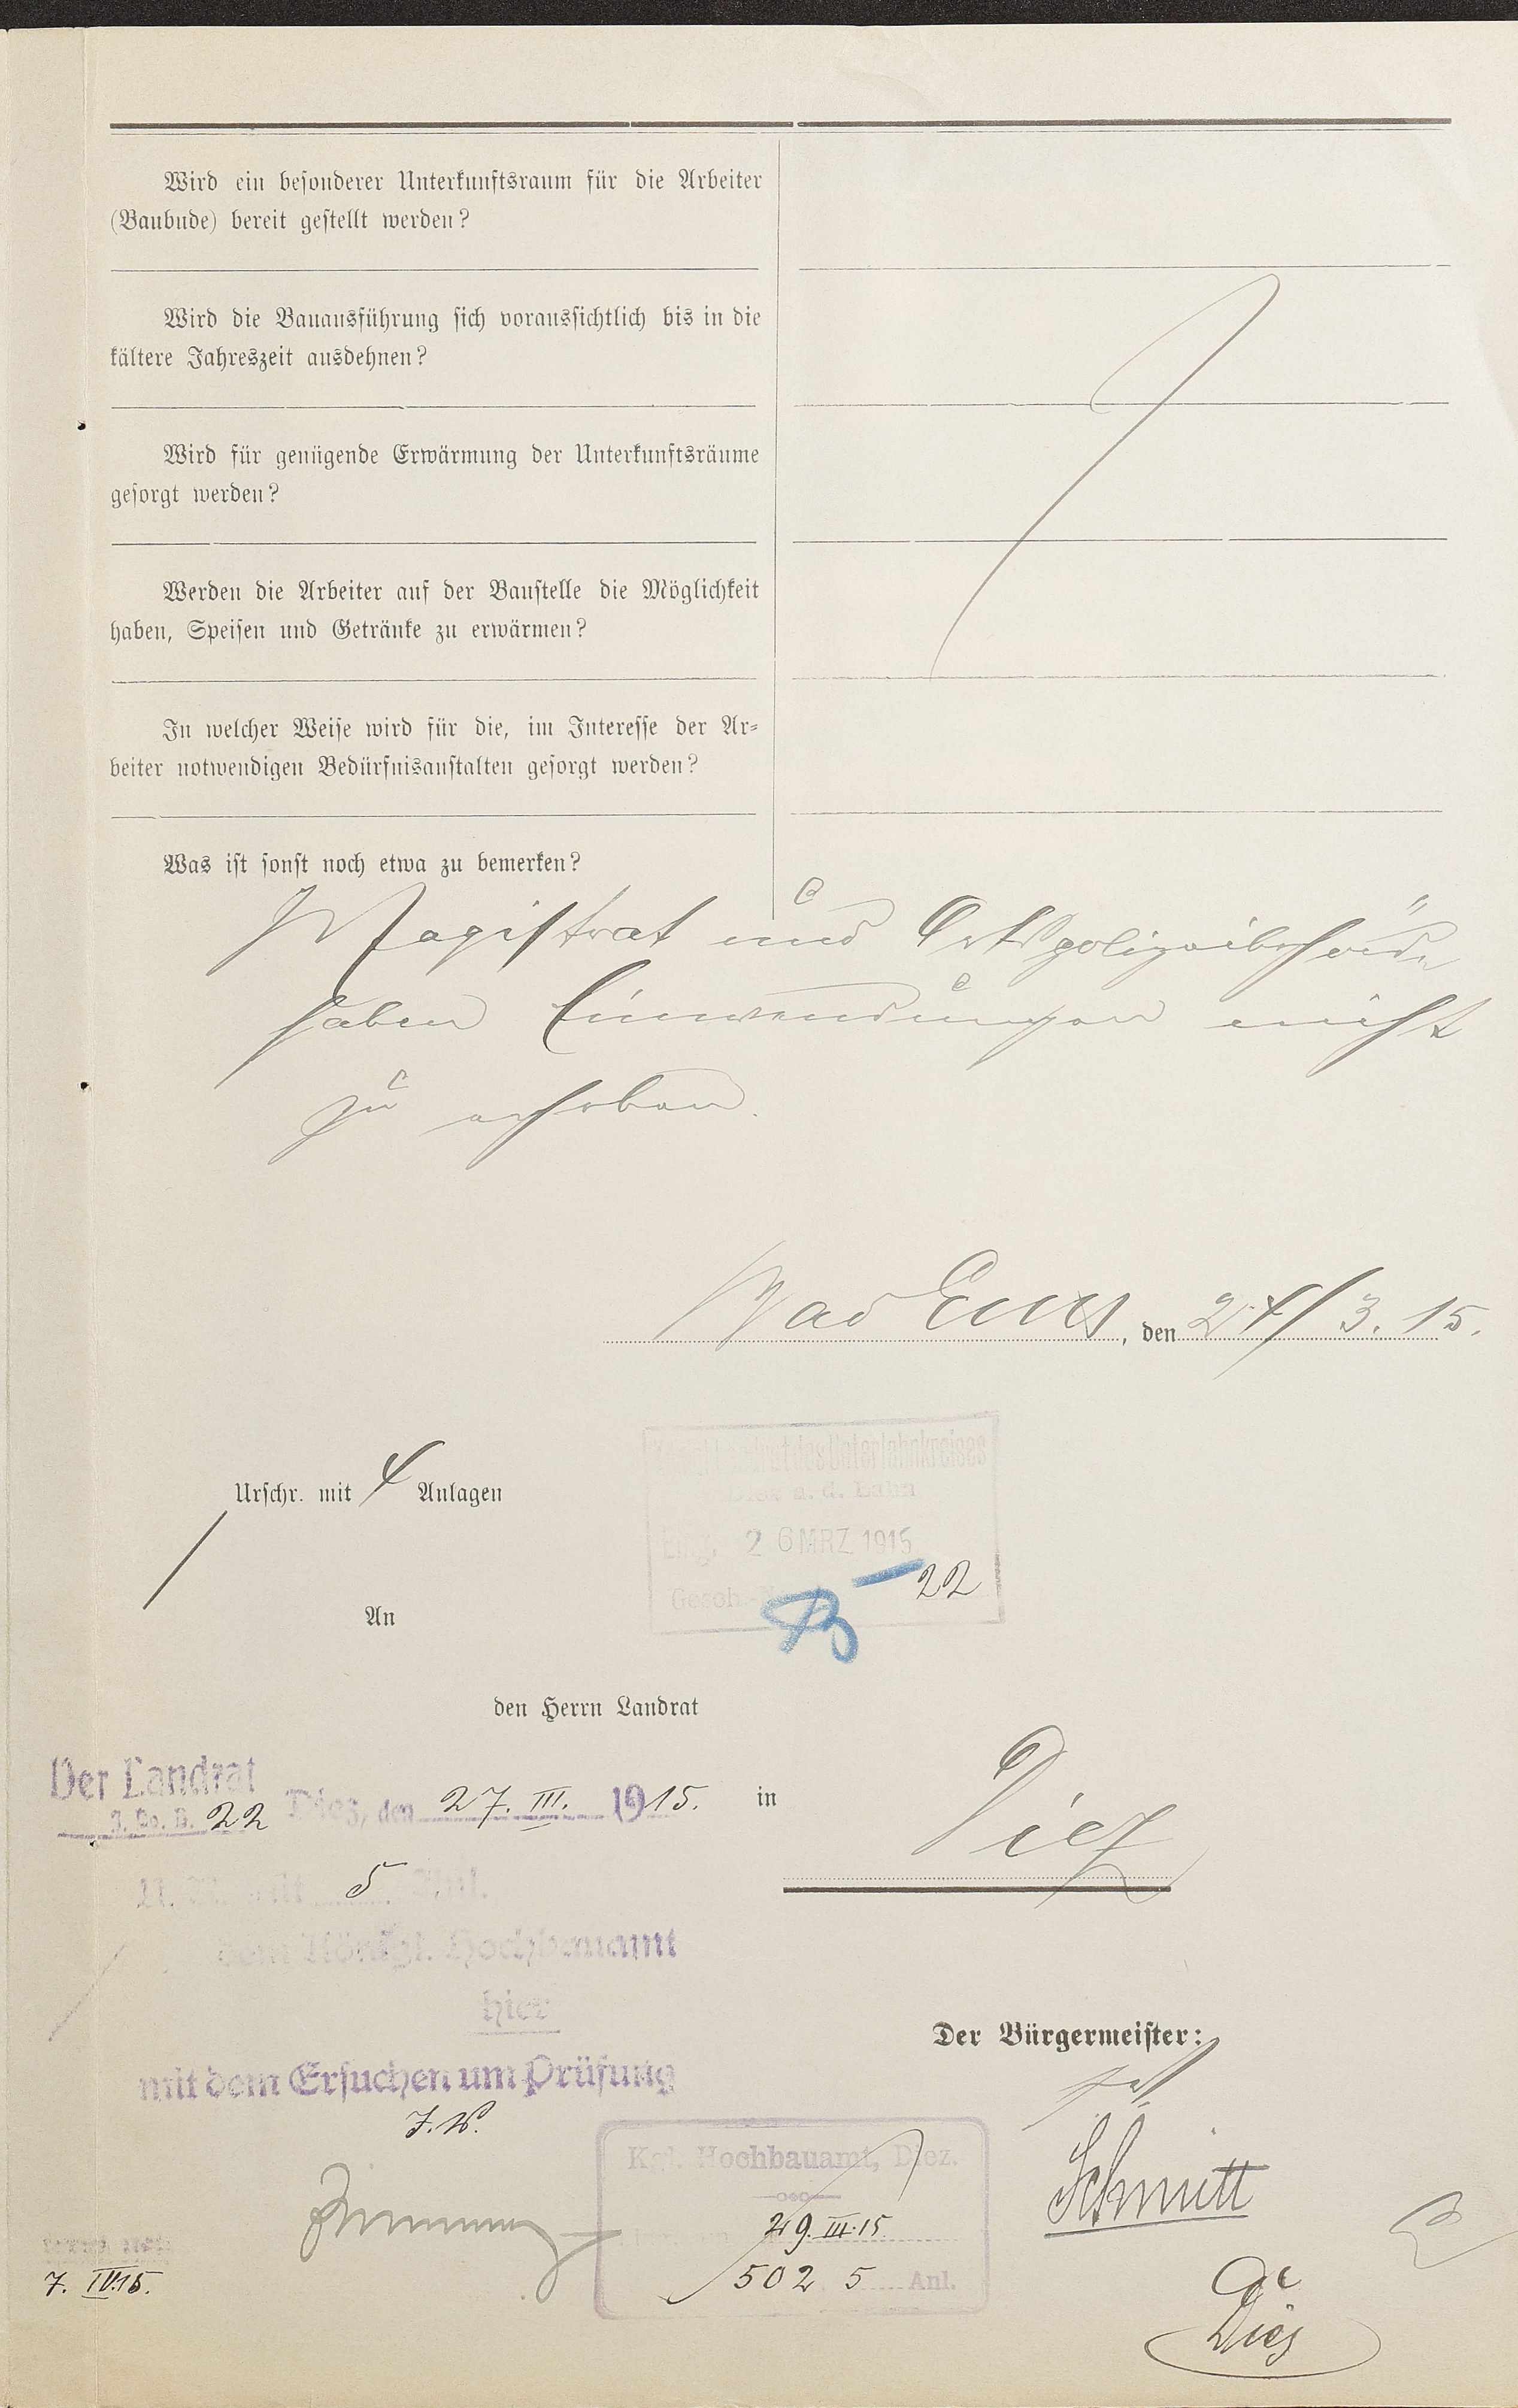 Wird ein besonderer Unterkunftsraum für die Arbeiter
(Baubude) bereit gestellt werden?
Wird die Bauausführung sich voraussichtlich bis in die
kältere Jahreszeit ausdehnen?
Wird für genügende Erwärmung der Unterkunftsräume
gesorgt werden?
Werden die Arbeiter auf der Baustelle die Möglichkeit
haben, Speisen und Getränke zu erwärmen?
In welcher Weise wird für die, im Interesse der Ar-
beiter notwendigen Bedürfnisanstalten gesorgt werden?
Was ist sonst noch etwa zu bemerken?
Magistrat und Ortspolizeibehörde
haben Einwendungen nicht
zu erheben.
Bad Ems, den 24/3. 15.
Urschr. mit 4 Anlagen
Landrat des Unterlahnkreises
Diez a. d. Lahn
Eing. 26 MRZ 1915
Gesch.-N B 22
An
den Herrn Landrat
in Diez
Der Landrat
J. No. B. 22 Diez, den 27. III. 1915.
U. mit 5 Anl.
dem Königl. Hochbauamt
hier
mit dem Ersuchen um Prüfung
J. V.
Der Bürgermeister:
Schmitt
Kgl. Hochbauamt, Diez.
29. III. 15
502 5 Anl.
7. IV. 15.
Diez